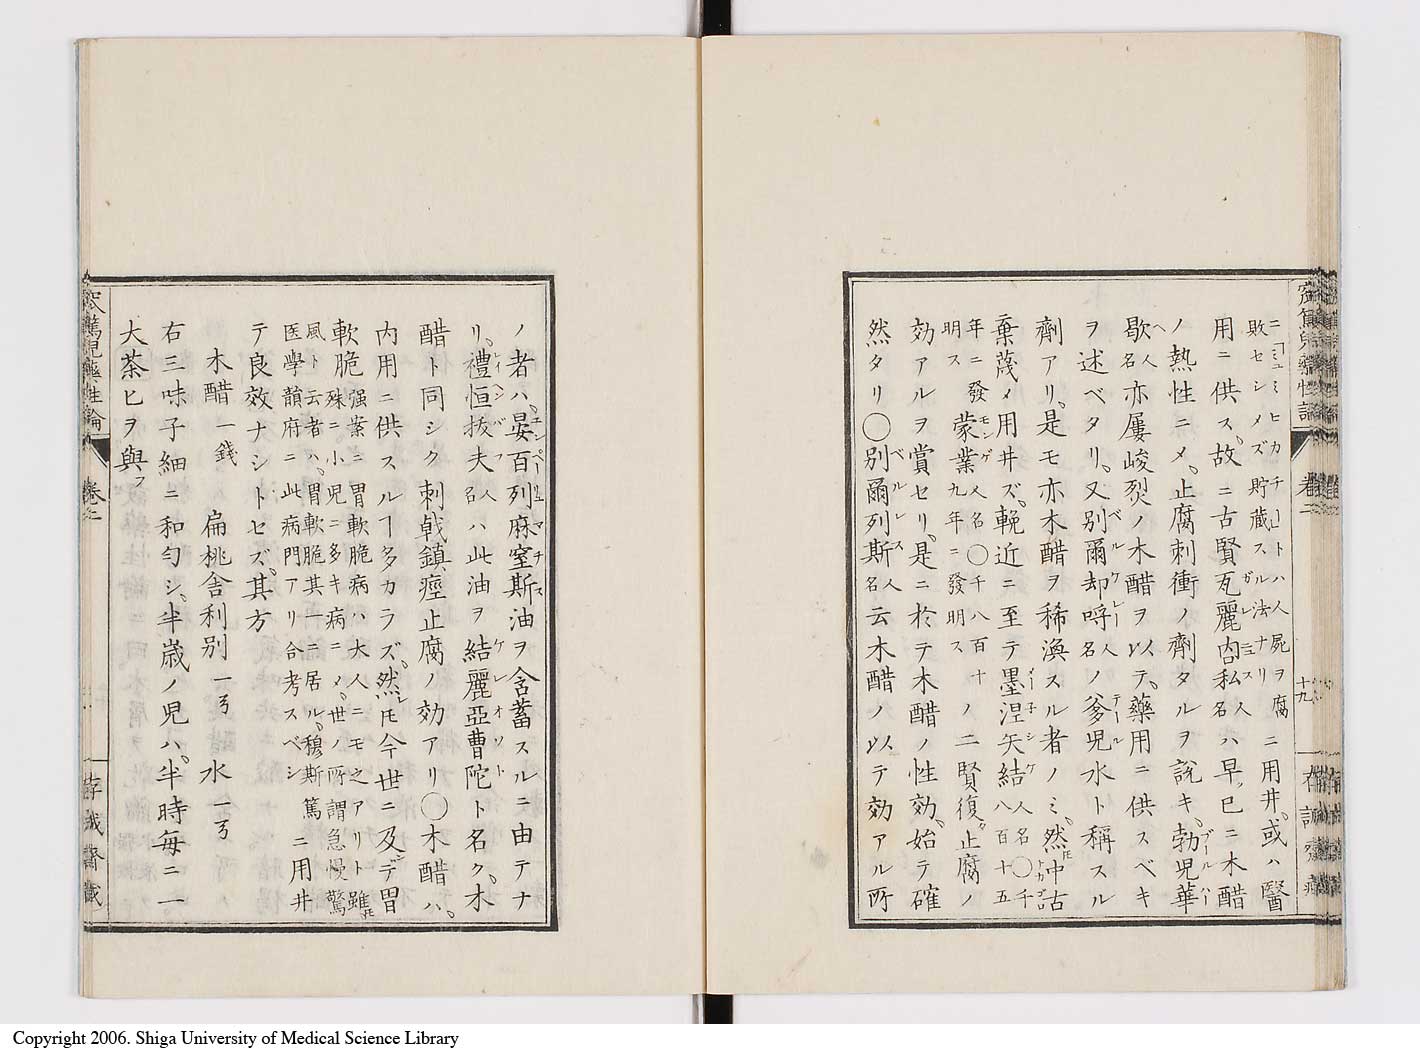 ニ「コミュミヒカチー」トハ人屍ヲ腐敗セシメズ貯蔵スル法ナリニ用井。或ハ醫
用ニ供ス。故ニ古賢瓦麗㐫私人名ハ早ッ已ニ木醋
ノ熱性ニメ。止腐刺衝ノ劑タルヲ説キ。勃児華
歇人名亦屢峻烈ノ木醋ヲ以テ。藥用ニ供スベキ
ヲ述ベタリ。又別爾却呼人名ノ爹児水ト稱スル
劑アリ。是モ亦木醋ヲ稀渙スル者ノミ。然𪜈中古
棄蔑メ用井ズ。輓近ニ至テ墨涅矢結人名〇千八百十五
年ニ發明ス蒙業人名〇千八百十九年ニ發明スノ二賢復止腐ノ
効アルヲ賞セリ。是ニ於テ木醋ノ性効。始テ確
然タリ〇別爾列斯人名云木醋ノ以テ効アル所
ノ者ハ。晏百列麻窒斯油ヲ含蓄スルニ由テナ
リ。禮恒抜夫人名ハ此油ヲ結麗亞曹陀ト名ク。木
醋ト同シク刺戟鎮痙止腐ノ効アリ〇木醋ハ。
内用ニ供スルヿ多カラズ。然レ𪜈今世ニ及デ胃
軟脆強案ニ胃軟脆病ハ大人ニモ之アリト雖𪜈殊ニ小児ニ多キ病ニメ。世ノ所謂急慢驚
風ト云者ハ。胃軟脆其一ニ居ル。穆斯篤医學韻府ニ此病門アリ合考スベシニ用井
テ良效ナシトセズ。其方
木醋 一錢 扁桃舎利別 一弓 水 一弓
右三味子細ニ和匀シ。半歳ノ児ハ。半時毎ニ一
大茶匕ヲ與フ
巻二
十九
Copyright 2006. Shiga University of Medical Science Library